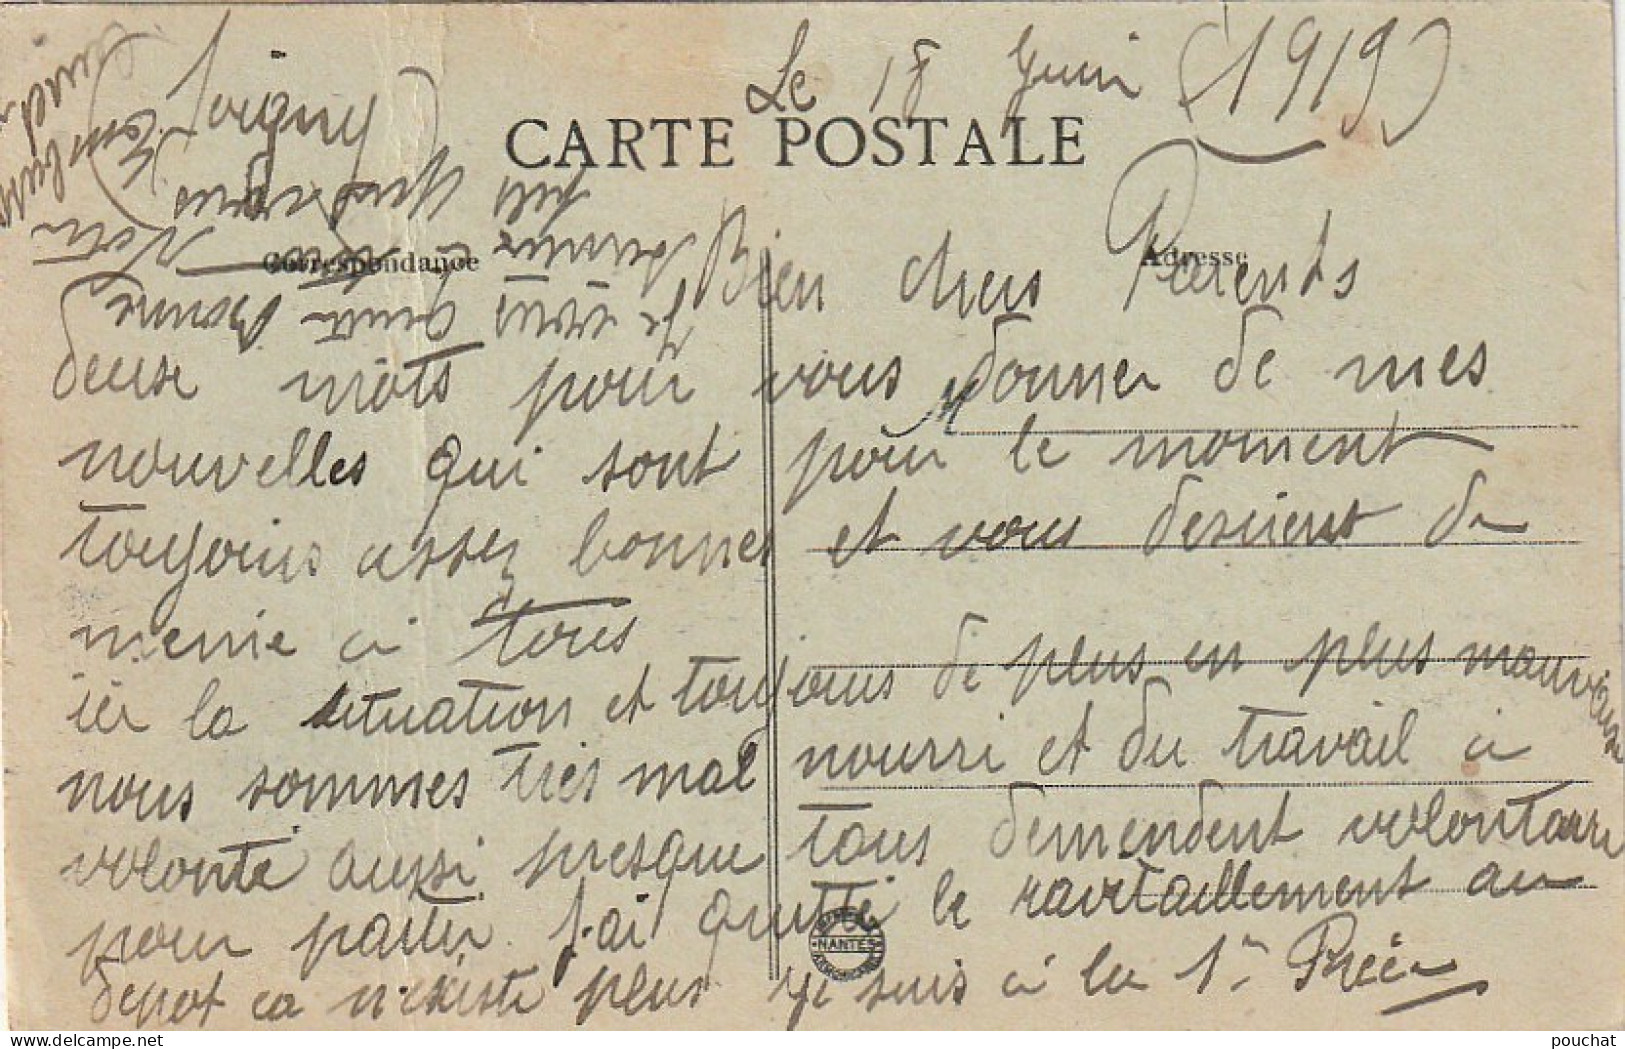 Le 18 Juin (1919)
Joigny
CARTE POSTALE
Correspondance
Adresse
Bien chers Parents
deux mots pour vous donner de mes
nouvelles qui sont pour le moment
toujours assez bonnes et vous desirent de
meme a tous
ici la situation et toujours de plus en plus mauvaise
nous sommes très mal nourri et du travail a
volonté aussi presque tous demendent volontaire
pour partir j'ai quitté le ravitaillement au
depot ca n'existe plus je suis a la 1re
NANTES
Je vous quitte
fils
pouchat